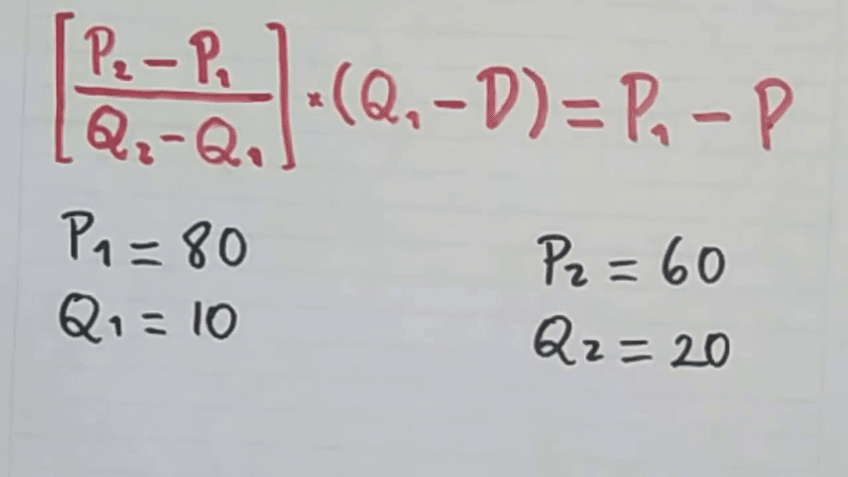 [P₂ - P₁ / Q₂ - Q₁] * (Q₁ - D) = P₁ - P
P₁ = 80
Q₁ = 10
P₂ = 60
Q₂ = 20